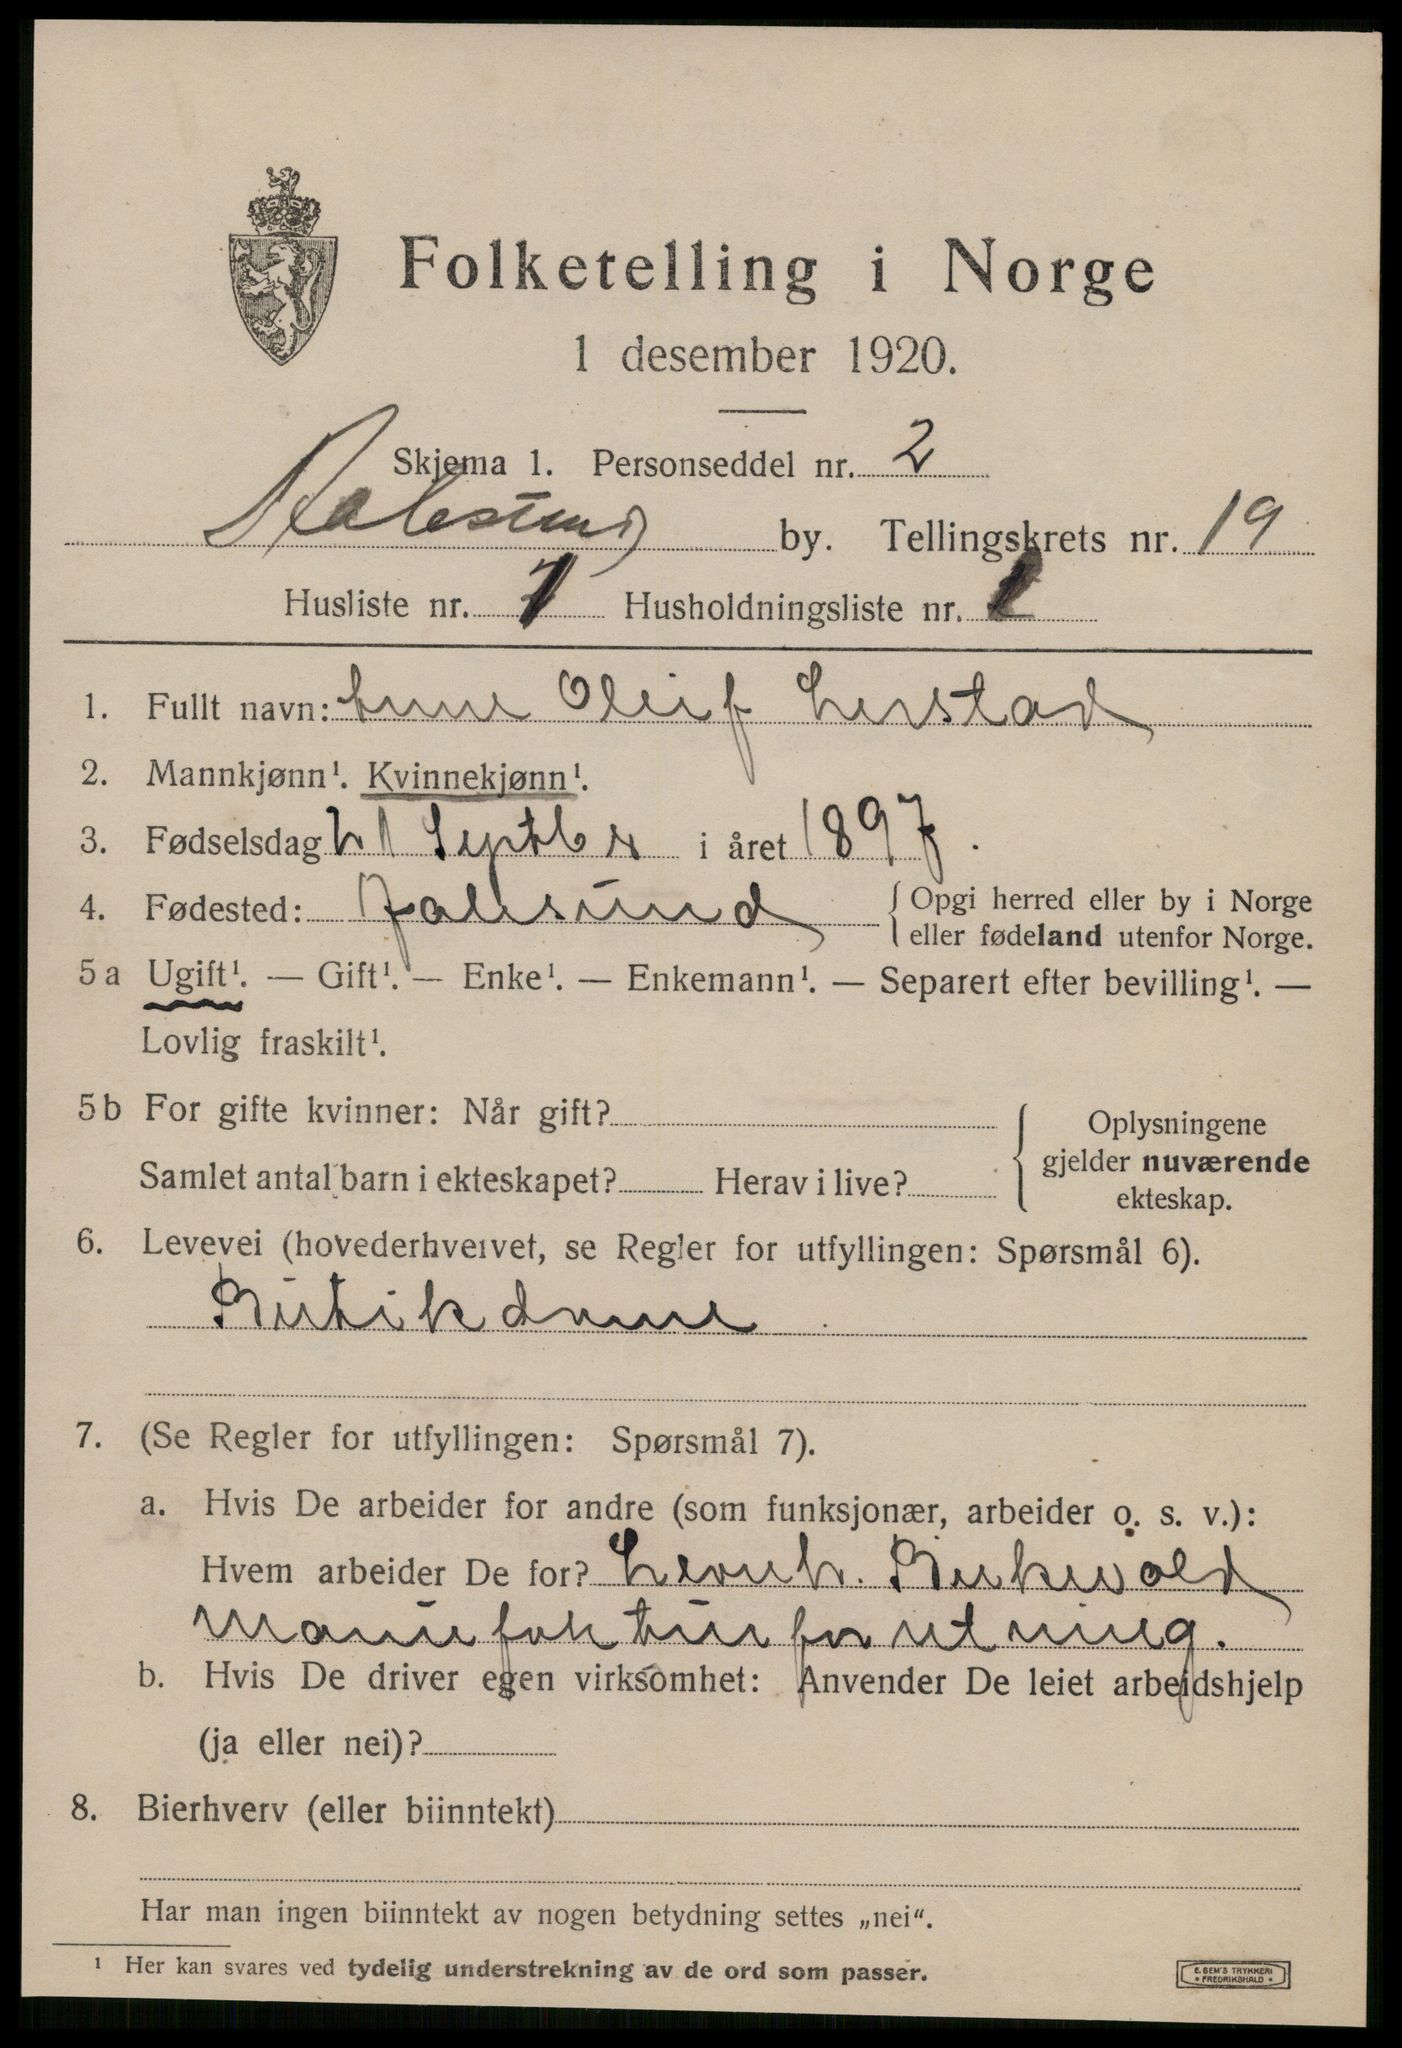 Folketelling i Norge
1 desember 1920.
Skjema 1. Personseddel nr. 2
Aalesund by. Tellingskrets nr. 19
Husliste nr. 1 Husholdningsliste nr.
1. Fullt navn: Oleif
2. Mannkjønn¹. Kvinnekjønn¹.
3. Fødselsdag Septbr i året 1897.
4. Fødested: Aalesund { Opgi herred eller by i Norge
eller fødeland utenfor Norge.
5a Ugift¹. — Gift¹. — Enke¹. — Enkemann¹. — Separert efter bevilling¹. —
Lovlig fraskilt¹.
5b For gifte kvinner: Når gift? { Oplysningene
gjelder nuværende
ekteskap.
Samlet antal barn i ekteskapet? Herav i live?
6. Levevei (hovederhvervet, se Regler for utfyllingen: Spørsmål 6).
Butikdame
7. (Se Regler for utfyllingen: Spørsmål 7).
a. Hvis De arbeider for andre (som funksjonær, arbeider o. s. v.):
Hvem arbeider De for?
Manufakturforretning.
b. Hvis De driver egen virksomhet: Anvender De leiet arbeidshjelp
(ja eller nei)?
8. Bierhverv (eller biinntekt)
Har man ingen biinntekt av nogen betydning settes „nei“.
¹ Her kan svares ved tydelig understrekning av de ord som passer.
E. SEM'S TRYKKERI
FREDRIKSHALD